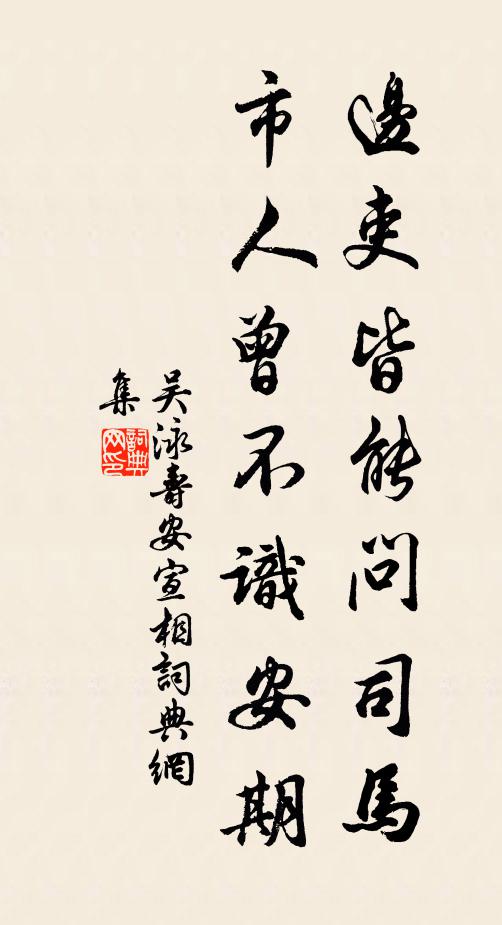 邊吏皆能問司馬
市人曾不識安期
吴泳壽安宣相詞典網
集
詞典网印